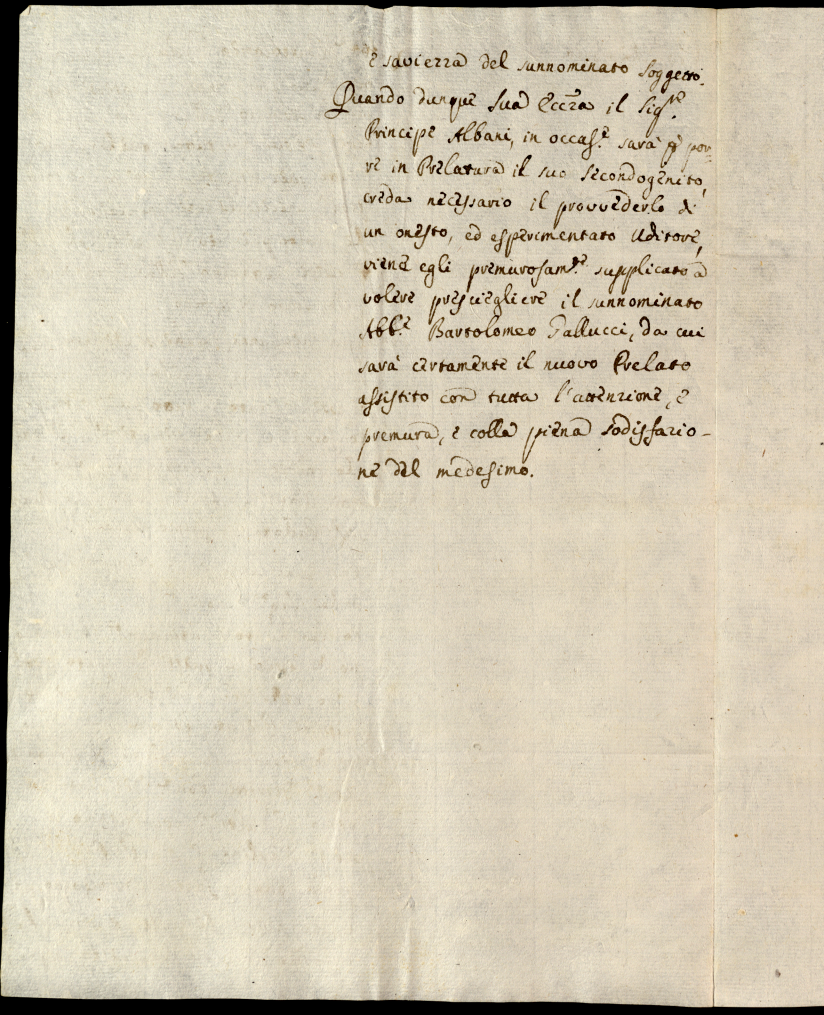 e saviezza del sunnominato Soggetto.
Quando dunque Sua Ecc̃za il Sigʳᵉ
Principe Albani, in occasᵉ sarà p por-
re in Prelatura il suo Secondogenito,
creda necessario il provvederlo di
un onesto, ed esperimentato Uditore,
viene egli premurosamᵗᵉ supplicato à
volere presciegliere il sunnominato
Abbᵉ Bartolomeo Gallucci, da cui
sarà certamente il nuovo Prelato
assistito con tutta l'attenzione, e
premura, e colla piena sodisfazio-
ne del medesimo.